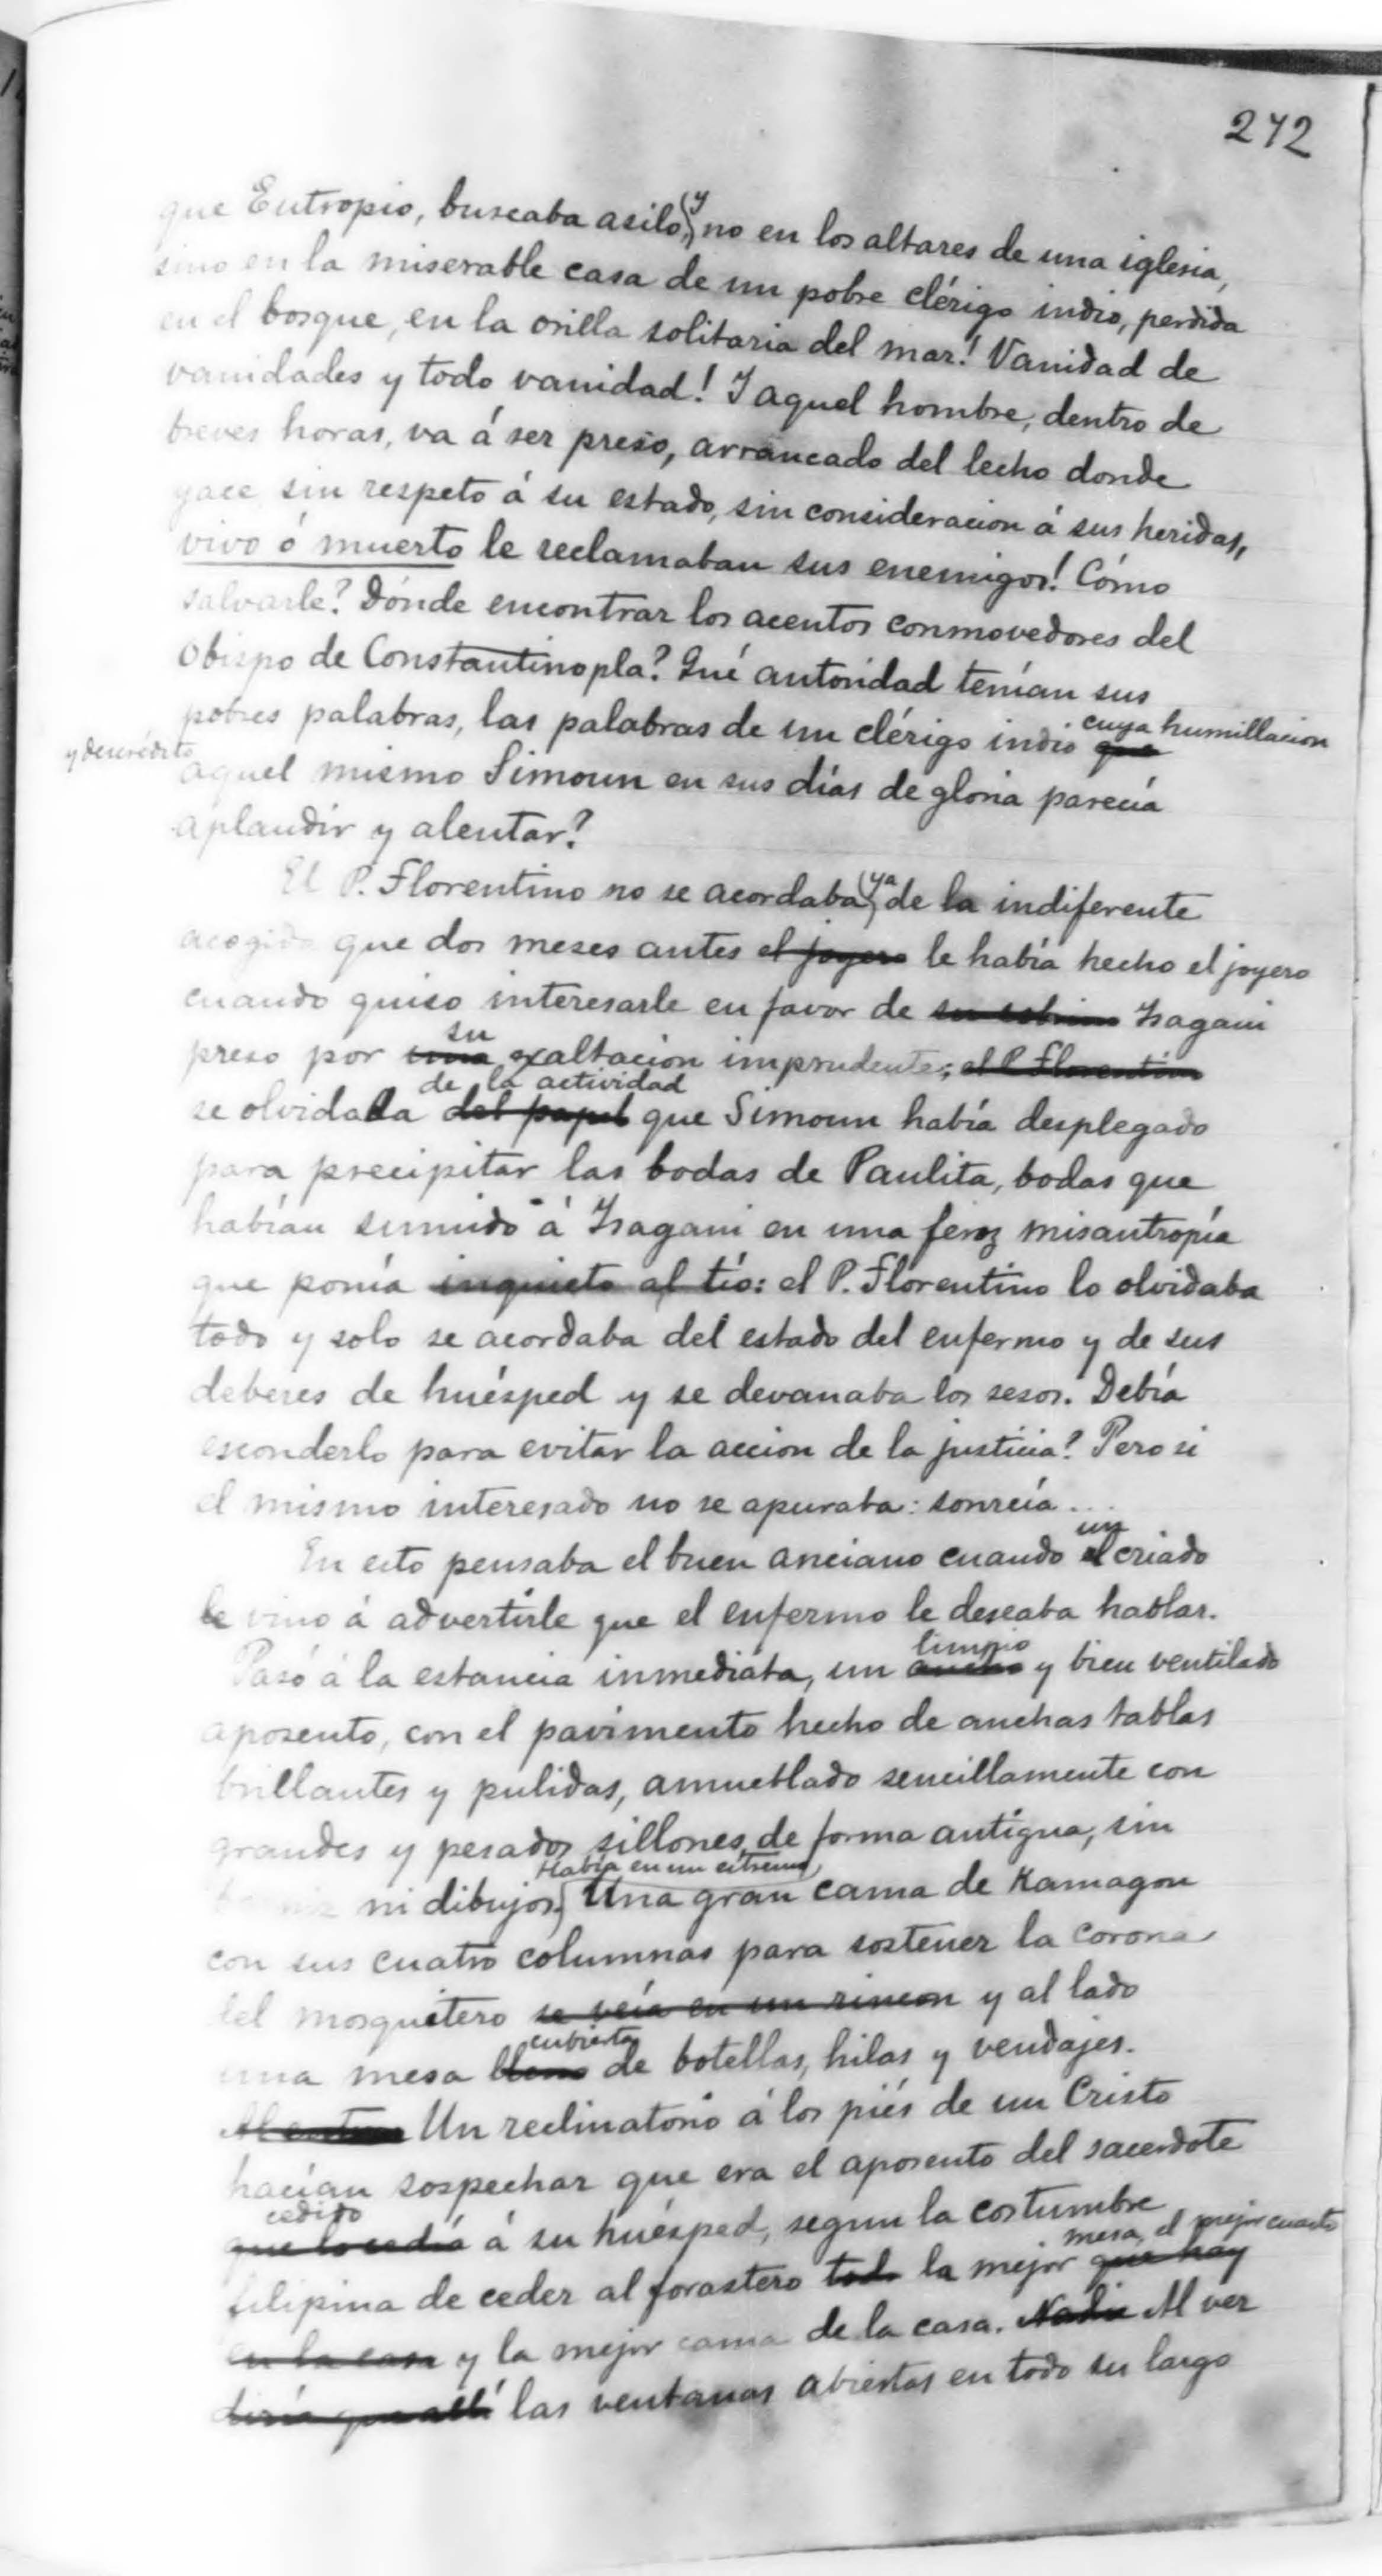 272
que Eutropio, buscaba asilo, y no en los altares de una iglesia,
sino en la miserable casa de un pobre clérigo indio, perdida
en el bosque, en la orilla solitaria del mar! Vanidad de
vanidades y todo vanidad! Y aquel hombre, dentro de
breves horas, va á ser preso, arrancado del lecho donde
yace sin respeto á su estado, sin consideracion á sus heridas,
vivo ó muerto le reclamaban sus enemigos! Cómo
salvarle? Dónde encontrar los acentos conmovedores del
Obispo de Constantinopla? Qué autoridad tenían sus
pobres palabras, las palabras de un clérigo indio que cuya humillacion
y descrédito
aquel mismo Simoun en sus días de gloria parecía
aplaudir y alentar?
El P. Florentino no se acordaba ya de la indiferente
acogida que dos meses antes el joyero le había hecho el joyero
cuando quiso interesarle en favor de su sobrino Isagani
preso por una su exaltacion imprudente; el P. Florentino
se olvidaba del papel de la actividad que Simoun había desplegado
para precipitar las bodas de Paulita, bodas que
habían sumido á Isagani en una feroz misantropía
que ponía inquieto al tío: el P. Florentino lo olvidaba
todo y solo se acordaba del estado del enfermo y de sus
deberes de huésped y se devanaba los sesos. Debía
esconderlo para evitar la accion de la justicia? Pero si
el mismo interesado no se apuraba: sonreía...
En esto pensaba el buen anciano cuando el un criado
le vino á advertirle que el enfermo le deseaba hablar.
Pasó á la estancia inmediata, un limpio y bien ventilado
aposento, con el pavimento hecho de anchas tablas
brillantes y pulidas, amueblado sencillamente con
grandes y pesados sillones, de forma antigua, sin
barniz ni dibujos. Había en un estremo Una gran cama de Kamagon
con sus cuatro columnas para sostener la corona
del mosquitero se veía en un rincon y al lado
una mesa llena cubierta de botellas, hilas y vendajes.
Un reclinatorio á los piés de un Cristo
hacían sospechar que era el aposento del sacerdote
que lo cedía cedido á su huésped, segun la costumbre
filipina de ceder al forastero todo la mejor que hay mesa, el mejor cuarto
en la casa y la mejor cama de la casa. Nadie Al ver
diría que allí las ventanas abiertas en todo su largo